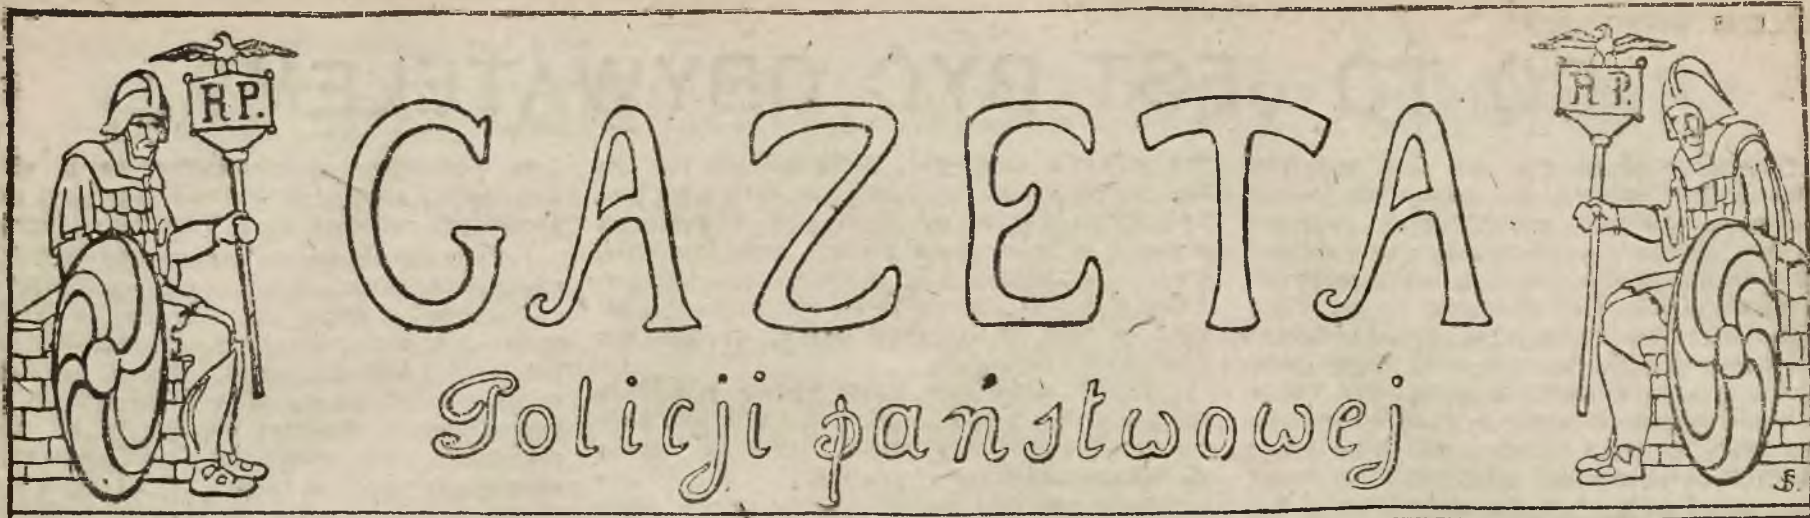 R.P.
R.P.
GAZETA
Policji państwowej